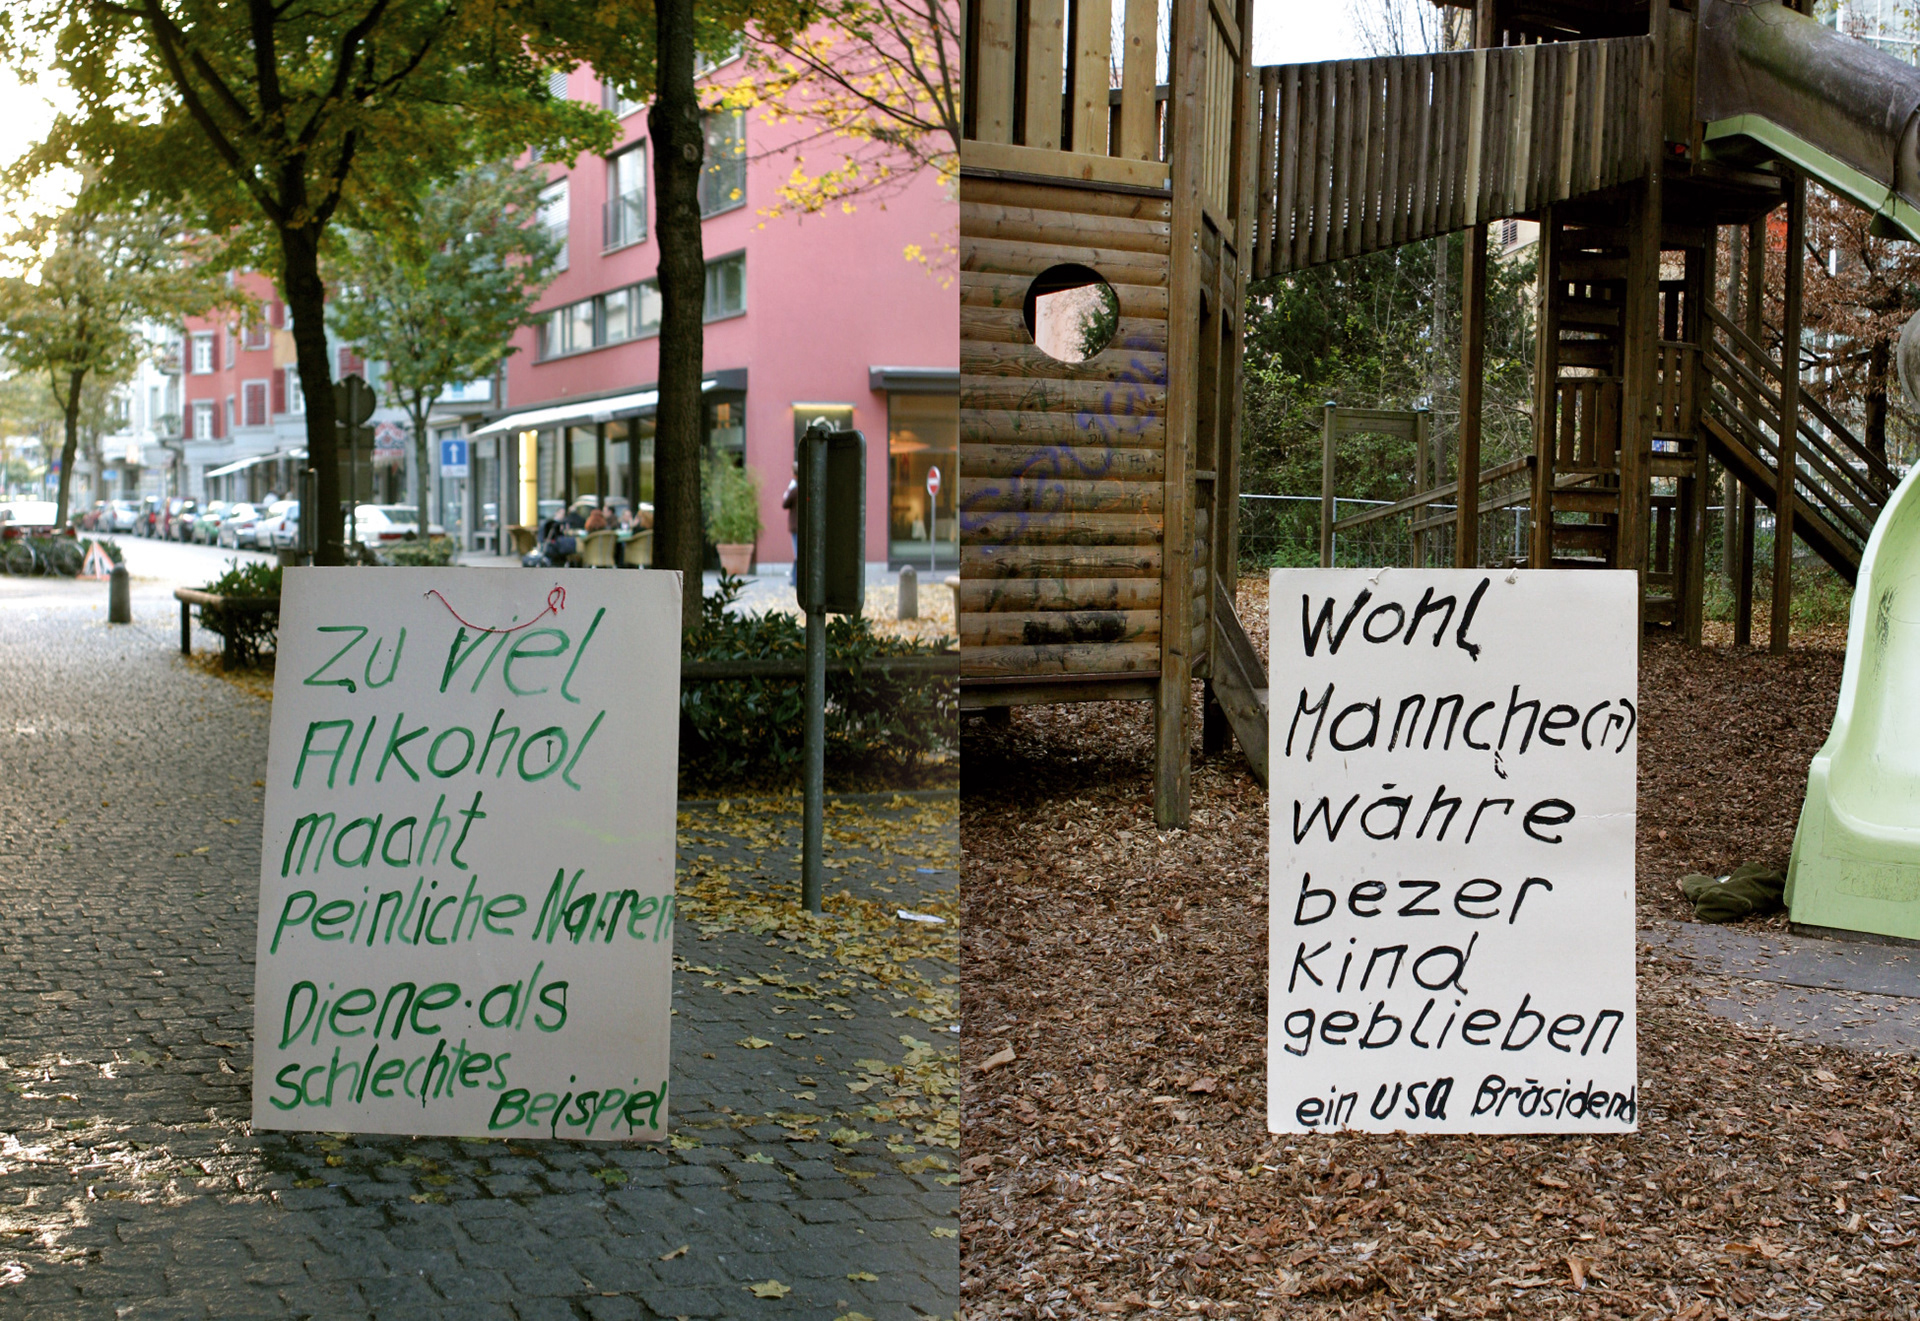 zu viel
Alkohol
macht
peinliche Narren
Diene als
schlechtes
Beispiel
Wohl
Mannche(r)
währe
bezer
Kind
geblieben
ein USA Bräsidend